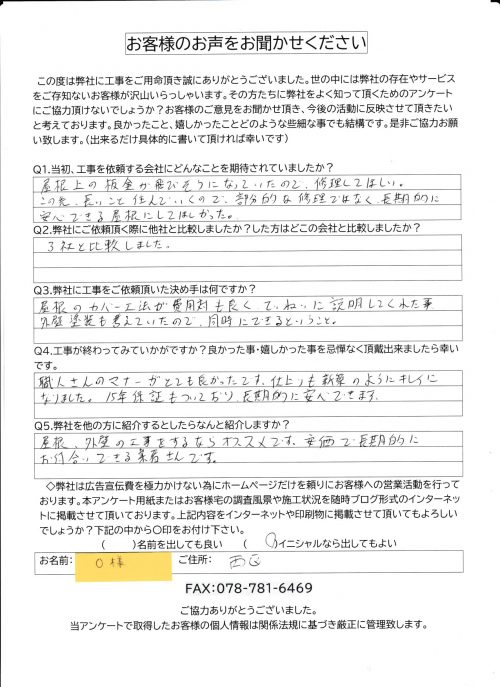 お客様のお声をお聞かせください
この度は弊社に工事をご用命頂き誠にありがとうございました。世の中には弊社の存在やサービス
をご存知ないお客様が沢山いらっしゃいます。その方たちに弊社をよく知って頂くためのアンケート
にご協力頂けないでしょうか？お客様のご意見をお聞かせ頂き、今後の活動に反映させて頂きたい
と考えております。良かったこと、嬉しかったことどのような些細な事でも結構です。是非ご協力お願
い致します。（出来るだけ具体的に書いて頂ければ幸いです）
Q1.当初、工事を依頼する会社にどんなことを期待されていましたか？
屋根上の板金が飛びそうになっていたので、修理してほしい。
この先、長いこと住んでいくので、部分的な修理ではなく、長期的に
安心できる屋根にしてほしかった。
Q2.弊社にご依頼頂く際に他社と比較しましたか？した方はどこの会社と比較しましたか？
3社と比較しました。
Q3.弊社に工事をご依頼頂いた決め手は何ですか？
屋根のカバー工法が費用対も良く、ていねいに説明してくれた事
外壁塗装も考えていたので、同時にできるということ。
Q4.工事が終わってみていかがですか？良かった事・嬉しかった事を忌憚なく頂戴出来ましたら幸い
です。
職人さんのマナーがとても良かったです。仕上りも新築のようにキレイに
なりました。15年保証もついており長期的に安心できます。
Q5.弊社を他の方に紹介するとしたらなんと紹介しますか？
屋根、外壁の工事をするならオススメです。安価で長期的に
お付合いできる業者さんです。
◇弊社は広告宣伝費を極力かけない為にホームページだけを頼りにお客様への営業活動を行って
おります。本アンケート用紙またはお客様宅の調査風景や施工状況を随時ブログ形式のインターネッ
トに掲載させて頂いております。上記内容をインターネットや印刷物に掲載させて頂いてもよろしい
でしょうか？下記の中から〇印をお付け下さい。
（　）名前を出しても良い　（〇）イニシャルなら出してもよい
お名前：　O 様　ご住所：　西区
FAX：078-781-6469
ご協力ありがとうございました。
当アンケートで取得したお客様の個人情報は関係法規に基づき厳正に管理致します。